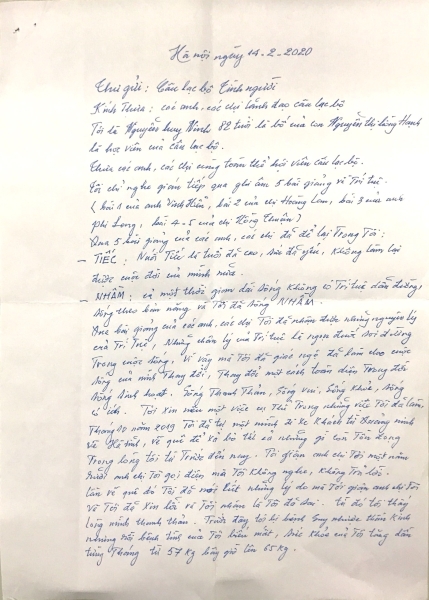 Hà nội ngày 14-2-2020
Thư gửi: Câu lạc bộ Tình người
Kính thưa: các anh, các chị lãnh đạo câu lạc bộ
Tôi là Nguyễn huy Ninh 82 tuổi là bố của con Nguyễn thị hồng Hạnh
là học viên của câu lạc bộ.
Thưa các anh, các chị cùng toàn thể hội viên câu lạc bộ.
Tôi chỉ nghe gián tiếp qua ghi âm 5 bài giảng về Trí tuệ.
(bài 1 của anh Vinh Hiển, bài 2 của chị Hoàng Lan, bài 3 của anh
phi Long, bài 4-5 của chị Hồng Thuận)
Qua 5 bài giảng của các anh, các chị đã để lại Trong Tôi:
- TIẾC: Nuối Tiếc vì tuổi đã cao, sức đã yếu, không làm lại
được cuộc đời của mình nữa.
- NHẦM: cả một thời gian dài sống không có Trí tuệ dẫn đường,
sống theo bản năng và Tôi đã sống NHẦM.
Qua bài giảng của các anh, các chị Tôi đã nhận được những nguyên lý
của Trí Tuệ, Những chân lý của Trí tuệ là ngọn đuốc soi đường
Trong cuộc sống, vì vậy mà Tôi đã giác ngộ đã làm cho cuộc
sống của mình Thay đổi, Thay đổi một cách toàn diện Trong đời
sống sinh hoạt. Sống Thanh Thản, Sống vui, Sống khỏe, Sống
có ích. Tôi xin nêu một việc cụ Thể Trong những việc Tôi đã làm,
Tháng 10 năm 2019 Tôi đã tự một mình đi xe khách từ
về Hà tĩnh, về quê để xả bỏ tất cả những gì còn Tồn đọng
Trong lòng tôi từ Trước đến nay. Tôi giận anh chị Tôi một năm
rưỡi anh chị Tôi gọi điện mà Tôi Không nghe, Không Trả lời.
Lần về quê đó Tôi đã nói hết những lý do mà Tôi giận anh chị Tôi
và Tôi đã xin lỗi và Tôi nhận là Tôi đã sai. từ đó tôi thấy
lòng mình thanh thản. Trước đây tôi bị bệnh suy nhược thần kinh
bệnh tình của Tôi biến mất, sức khỏe của Tôi tăng dần
từng Tháng từ 57 kg bây giờ lên 65 kg.